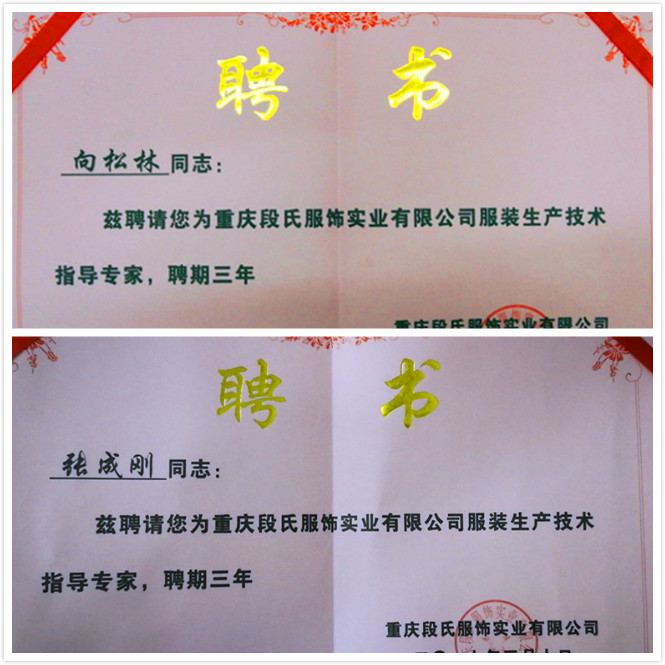 聘书
向松林同志：
兹聘请您为重庆段氏服饰实业有限公司服装生产技术
指导专家，聘期三年
重庆段氏服饰实业有限公司
聘书
张成刚同志：
兹聘请您为重庆段氏服饰实业有限公司服装生产技术
指导专家，聘期三年
重庆段氏服饰实业有限公司